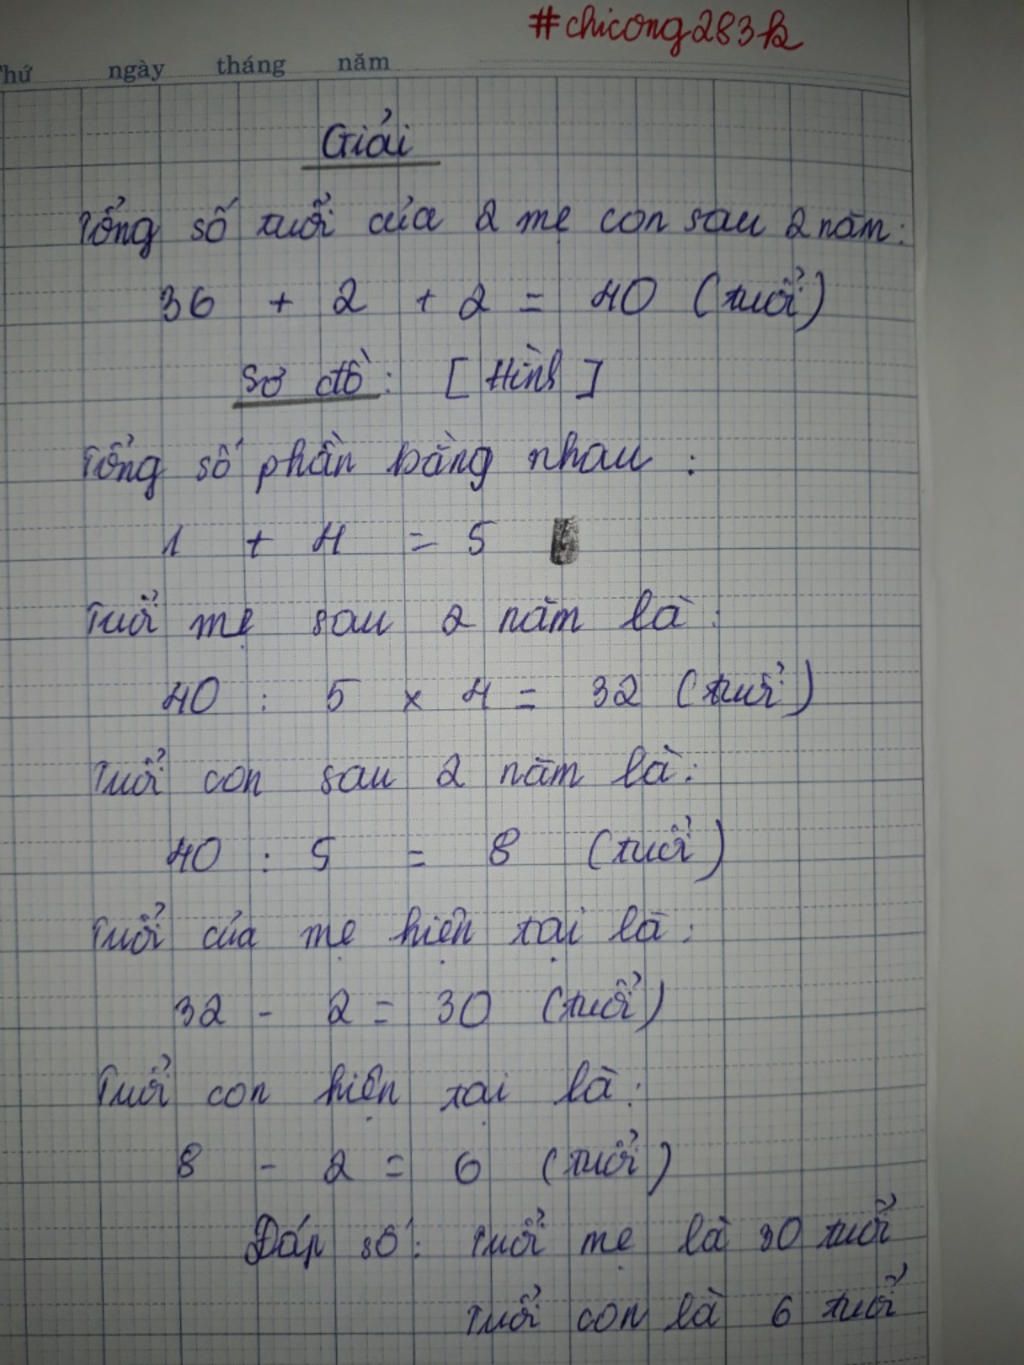 #chicong283k
Thứ ngày tháng năm
Giải
Tổng số tuổi của 2 mẹ con sau 2 năm:
36 + 2 + 2 = 40 (tuổi)
Sơ đồ: [Hình]
Tổng số phần bằng nhau :
1 + 4 = 5
Tuổi mẹ sau 2 năm là :
40 : 5 x 4 = 32 (tuổi)
Tuổi con sau 2 năm là:
40 : 5 = 8 (tuổi)
Tuổi của mẹ hiện tại là :
32 - 2 = 30 (tuổi)
Tuổi con hiện tại là :
8 - 2 = 6 (tuổi)
Đáp số : Tuổi mẹ là 30 tuổi
Tuổi con là 6 tuổi